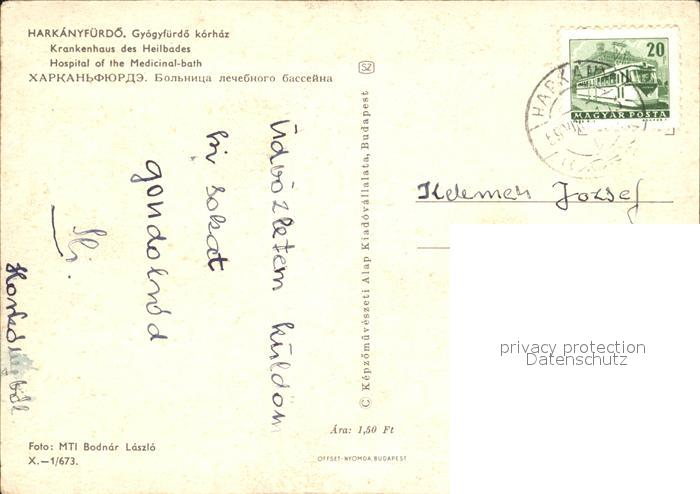 HARKÁNYFÜRDŐ. Gyógyfürdő kórház
Krankenhaus des Heilbades
Hospital of the Medicinal-bath
ХАРКАНЬФЮРДЭ. Больница лечебного бассейна
Üdvözletem küldöm
sokat
gondolnod
SZ
© Képzőművészeti Alap Kiadóvállalata, Budapest
20
MAGYAR POSTA
HARKÁNY
Kelemen József
privacy protection
Datenschutz
Ára: 1,50 Ft
OFFSET-NYOMDA, BUDAPEST
Foto: MTI Bodnár László
X.—1/673.